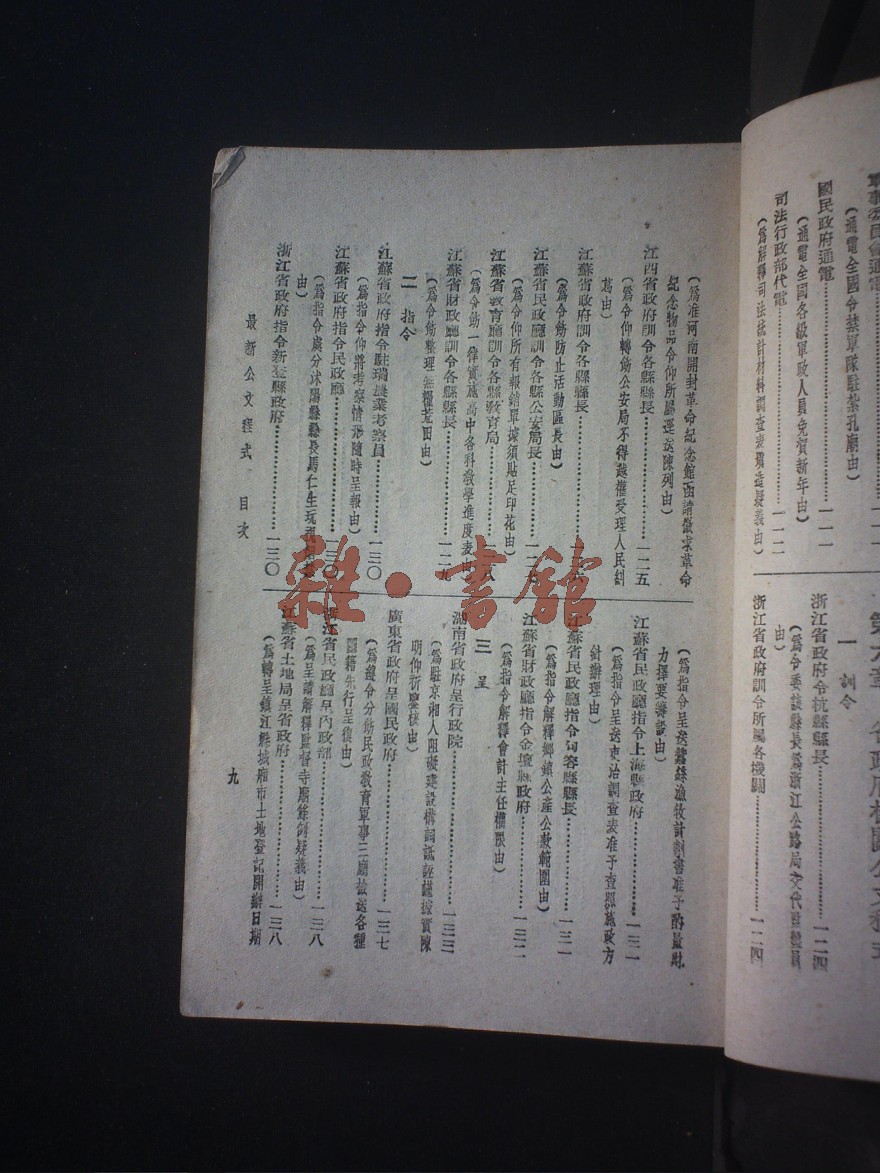 軍事委員會通電
(通電全國令禁軍隊駐紮孔廟由)
國民政府通電……一一一
(通電全國各級軍政人員免賀新年由)
司法行政部代電……一一二
(爲解釋司法統計材料調查表填造疑義由)
第六章 省政府機關公文程式
一 訓令
浙江省政府令杭縣縣長……一二四
(爲令委該縣長爲浙江公路局交代監盤員
由)
浙江省政府訓令所屬各機關……一二四
(爲准河南開封革命紀念館函請徵求革命
紀念物品令仰所屬運送陳列由)
江西省政府訓令各縣縣長……一二五
(爲令仰轉飭公安局不得越權受理人民糾
葛由)
江蘇省政府訓令各縣縣長
(爲令飭防止活動區長由)
江蘇省民政廳訓令各縣公安局長
(爲令仰所有報銷單據須貼足印花由)
江蘇省教育廳訓令各縣教育局
(爲令飭一律實施高中各科敎學進度表由)
江蘇省財政廳訓令各縣縣長……一二
(爲令飭整理無糧荒田由)
二 指令
江蘇省政府指令駐瑞農業考察員……一三〇
(爲指令仰將考察情形隨時呈報由)
江蘇省政府指令民政廳……一三〇
(爲指令處分沭陽縣縣長馬仁生玩視
由)
浙江省政府指令新登縣政府……一三〇
(爲指令呈送蠶絲漁牧計劃書准予酌量財
力擇要籌設由)
江蘇省民政廳指令上海縣政府……一三一
(爲指令呈送吏治調查表准予查照施政方
針辦理由)
江蘇省民政廳指令句容縣縣長……一三一
(爲指令解釋鄉鎮公產公款範圍由)
江蘇省財政廳指令金壇縣政府……一三二
(爲指令解釋會計主任權限由)
三 呈
湖南省政府呈行政院……一三三
(爲駐京湘人阻礙建設構詞詆誣謹據實陳
明仰祈鑒核由)
廣東省政府呈國民政府……一三七
(爲遵令分飭民政教育軍事三廳檢送各種
圖籍先行呈復由)
浙江省民政廳呈內政部……一三八
(爲呈請解釋監督寺廟條例疑義由)
江蘇省土地局呈省政府……一三八
(爲轉呈鎮江縣城廂市土地登記開辦日期
最新公文程式 目次
九
雜·書館